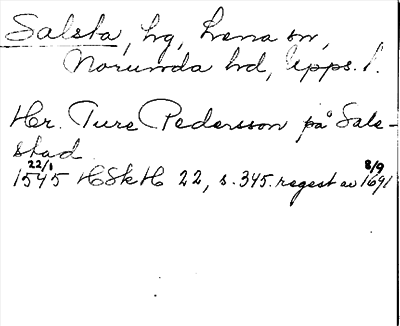 Salsta, hg, Lena sn,
Norunda hd, Upps. l.
Hr. Ture Pedersson på Sale-
stad
22/1 8/9
1545 HSkH 22, s. 345. regest av 1691